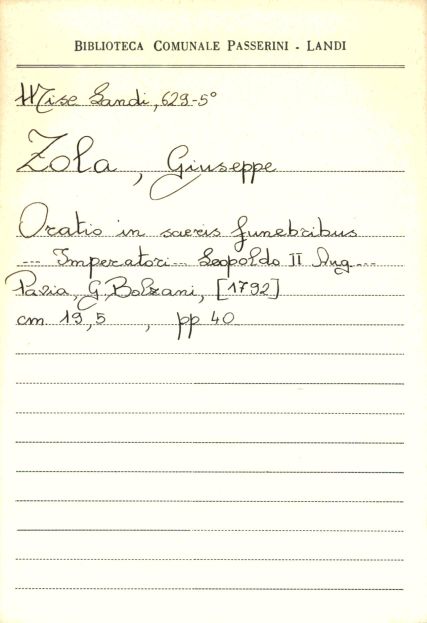 BIBLIOTECA COMUNALE PASSERINI - LANDI
Misc Landi, 629-5°
Zola, Giuseppe
Oratio in sacris funebribus
--- Imperatori --- Leopoldo II Aug ---
Pavia, G. Bolzani, [1792]
cm 19,5 , pp 40